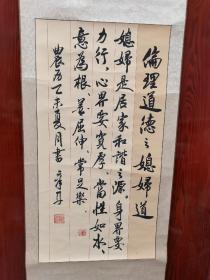 倫理道德之媳婦道
媳婦是居家和諧之源，身界要
力行，心界要寬厚，當性如水，
意為根，善屈伸，常足樂。
農历乙未夏月書